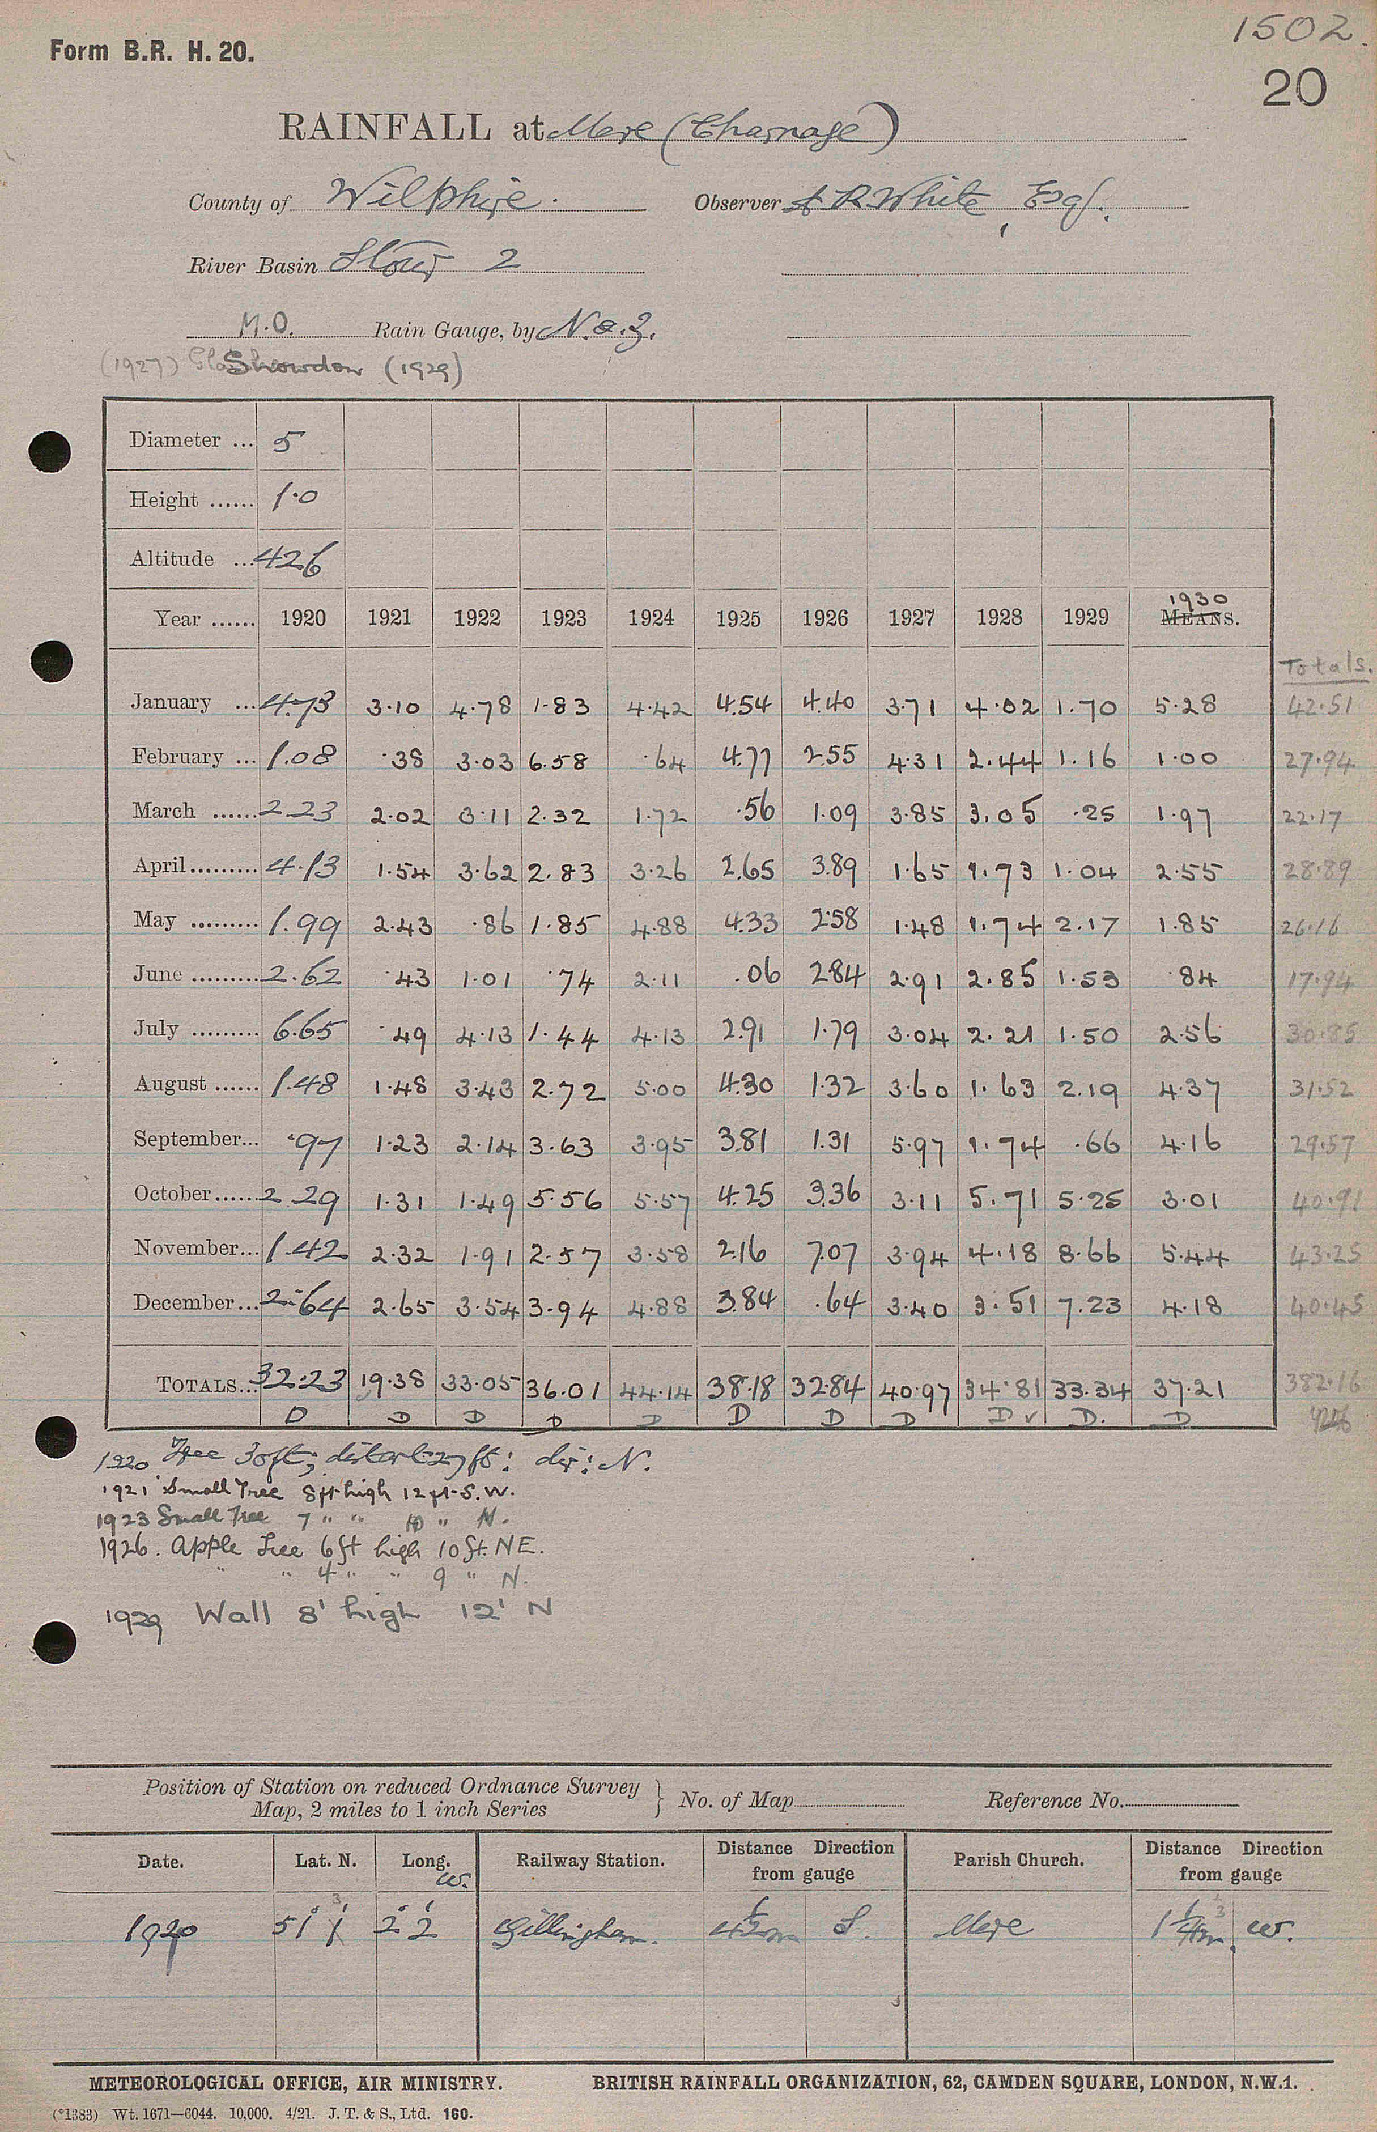 1502.
Form B.R. H. 20.
20
RAINFALL at Mere (Charnage)
County of Wiltshire. Observer A R White, Esq.
River Basin Stour 2
M.O. Rain Gauge, by Neg.
(1927) Snowdon (1929)
Diameter ... 5
Height ...... 1·0
Altitude ... 426
Year ...... 1920 1921 1922 1923 1924 1925 1926 1927 1928 1929 1930 MEANS.
Totals.
January ... 4·73 3·10 4·78 1·83 4·42 4.54 4.40 3·71 4·02 1.70 5·28 42·51
February ... 1.08 ·38 3·03 6·58 ·64 4.77 2.55 4·31 2.44 1.16 1·00 27·94
March ...... 2 23 2·02 3·11 2·32 1·72 ·56 1.09 3·85 3.05 ·25 1·97 22·17
April......... 4·13 1·54 3·62 2.83 3·26 2.65 3.89 1·65 1.73 1·04 2·55 28·89
May ......... 1.99 2·43 ·86 1·85 4·88 4.33 2.58 1·48 1.74 2·17 1·85 26·16
June ......... 2.62 ·43 1·01 ·74 2·11 .06 2.84 2·91 2.85 1·53 ·84 17·94
July ......... 6.65 ·49 4·13 1·44 4·13 2.91 1.79 3·04 2.21 1·50 2·56 30·85
August ...... 1.48 1·48 3·43 2·72 5·00 4.30 1.32 3·60 1.63 2.19 4·37 31·52
September... ·97 1·23 2·14 3·63 3·95 3.81 1.31 5·97 1.74 ·66 4·16 29·57
October...... 2 29 1·31 1·49 5·56 5·57 4.25 3.36 3·11 5.71 5·25 3·01 40·91
November... 1.42 2·32 1·91 2·57 3·58 2.16 7.07 3·94 4·18 8·66 5·44 43·25
December... 2·64 2·65 3·54 3·94 4·88 3.84 .64 3·40 3·51 7.23 4·18 40·45
TOTALS... 32·23 19·38 33·05 36·01 44·14 38·18 32.84 40·97 34·81 33·34 37·21 382·16
D D D D D D D D D v D. D
1920 Tree 30ft; distant 27ft: dir: N.
1921 Small Tree 8ft high 12 ft. S.W.
1923 Small Tree 7 " " 10 " N.
1926. Apple Tree 6ft high 10ft. NE.
" " 4 " " 9 " N.
1929 Wall 8' high 12' N
Position of Station on reduced Ordnance Survey Map, 2 miles to 1 inch Series } No. of Map Reference No.
Date. Lat. N. Long. W. Railway Station. Distance Direction from gauge Parish Church. Distance Direction from gauge
1920 51° 1' 3 2° 2' Gillingham. 4½m S. Mere 1¼m. 3 W.
METEOROLOGICAL OFFICE, AIR MINISTRY. BRITISH RAINFALL ORGANIZATION, 62, CAMDEN SQUARE, LONDON, N.W.1.
(*1383) Wt. 1671—6044. 10,000. 4/21. J. T. & S., Ltd. 160.